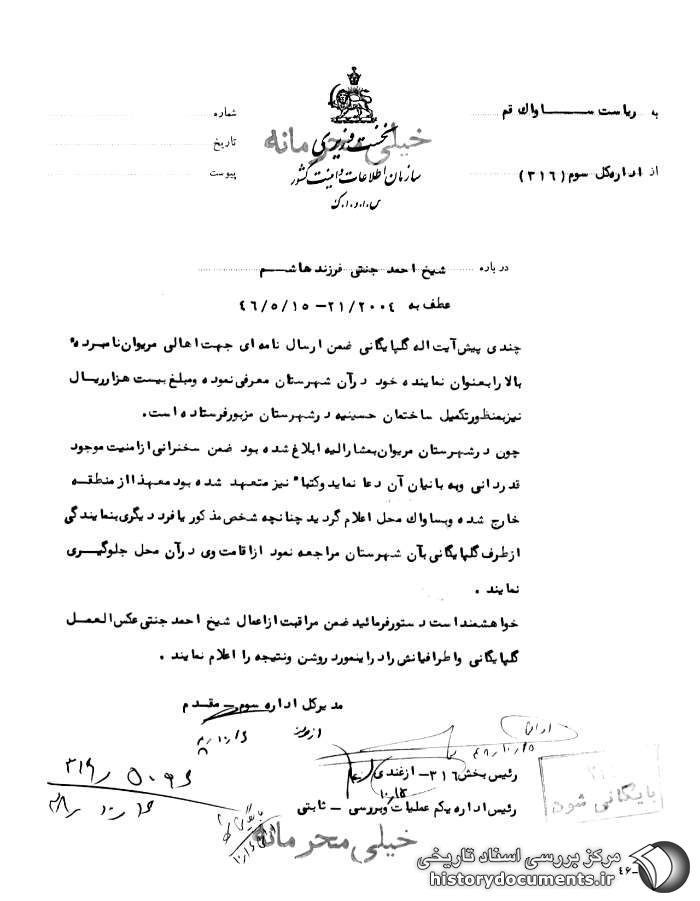 به ریاست ســـاواک قم
از اداره کل سوم (۳۱۶)
نخست وزیری
خیلی محرمانه
سازمان اطلاعات و امنیت کشور
س.ا.و.ا.ک
شماره
تاریخ
پیوست
درباره شیخ احمد جنتی فرزند هاشـم
عطف به ۲۱/۲۰۰۴-۴۶/۵/۱۵
چندی پیش آیت اله گلپایگانی ضمن ارسال نامه ای جهت اهالی مریوان نامبرده
بالا را بعنوان نماینده خود در آن شهرستان معرفی نموده و مبلغ بیست هزار ریال
نیز بمنظور تکمیل ساختمان حسینیه در شهرستان مزبور فرستاده است.
چون در شهرستان مریوان بمشارالیه ابلاغ شده بود ضمن سخنرانی از امنیت موجود
قدردانی و به بانیان آن دعا نماید و کتبا" نیز متعهد شده بود معهذا از منطقـه
خارج شده و بساواک محل اعلام گردید چنانچه شخص مذکور یا فرد دیگری بنمایندگی
از طرف گلپایگانی بآن شهرستان مراجعه نمود از اقامت وی در آن محل جلوگیــری
نمایند .
خواهشمند است دستور فرمائید ضمن مراقبت از اعمال شیخ احمد جنتی عکس العمـل
گلپایگانی و اطرافیانش را در اینمورد روشن و نتیجه را اعلام نمایند .
مدیر کل اداره سوم - مقدم
رئیس بخش ۳۱۶ - ازغندی
رئیس اداره یکم عملیات و بررسی - ثابتی
بایگانی شود
خیلی محرمانه
مرکز بررسی اسناد تاریخی
historydocuments.ir